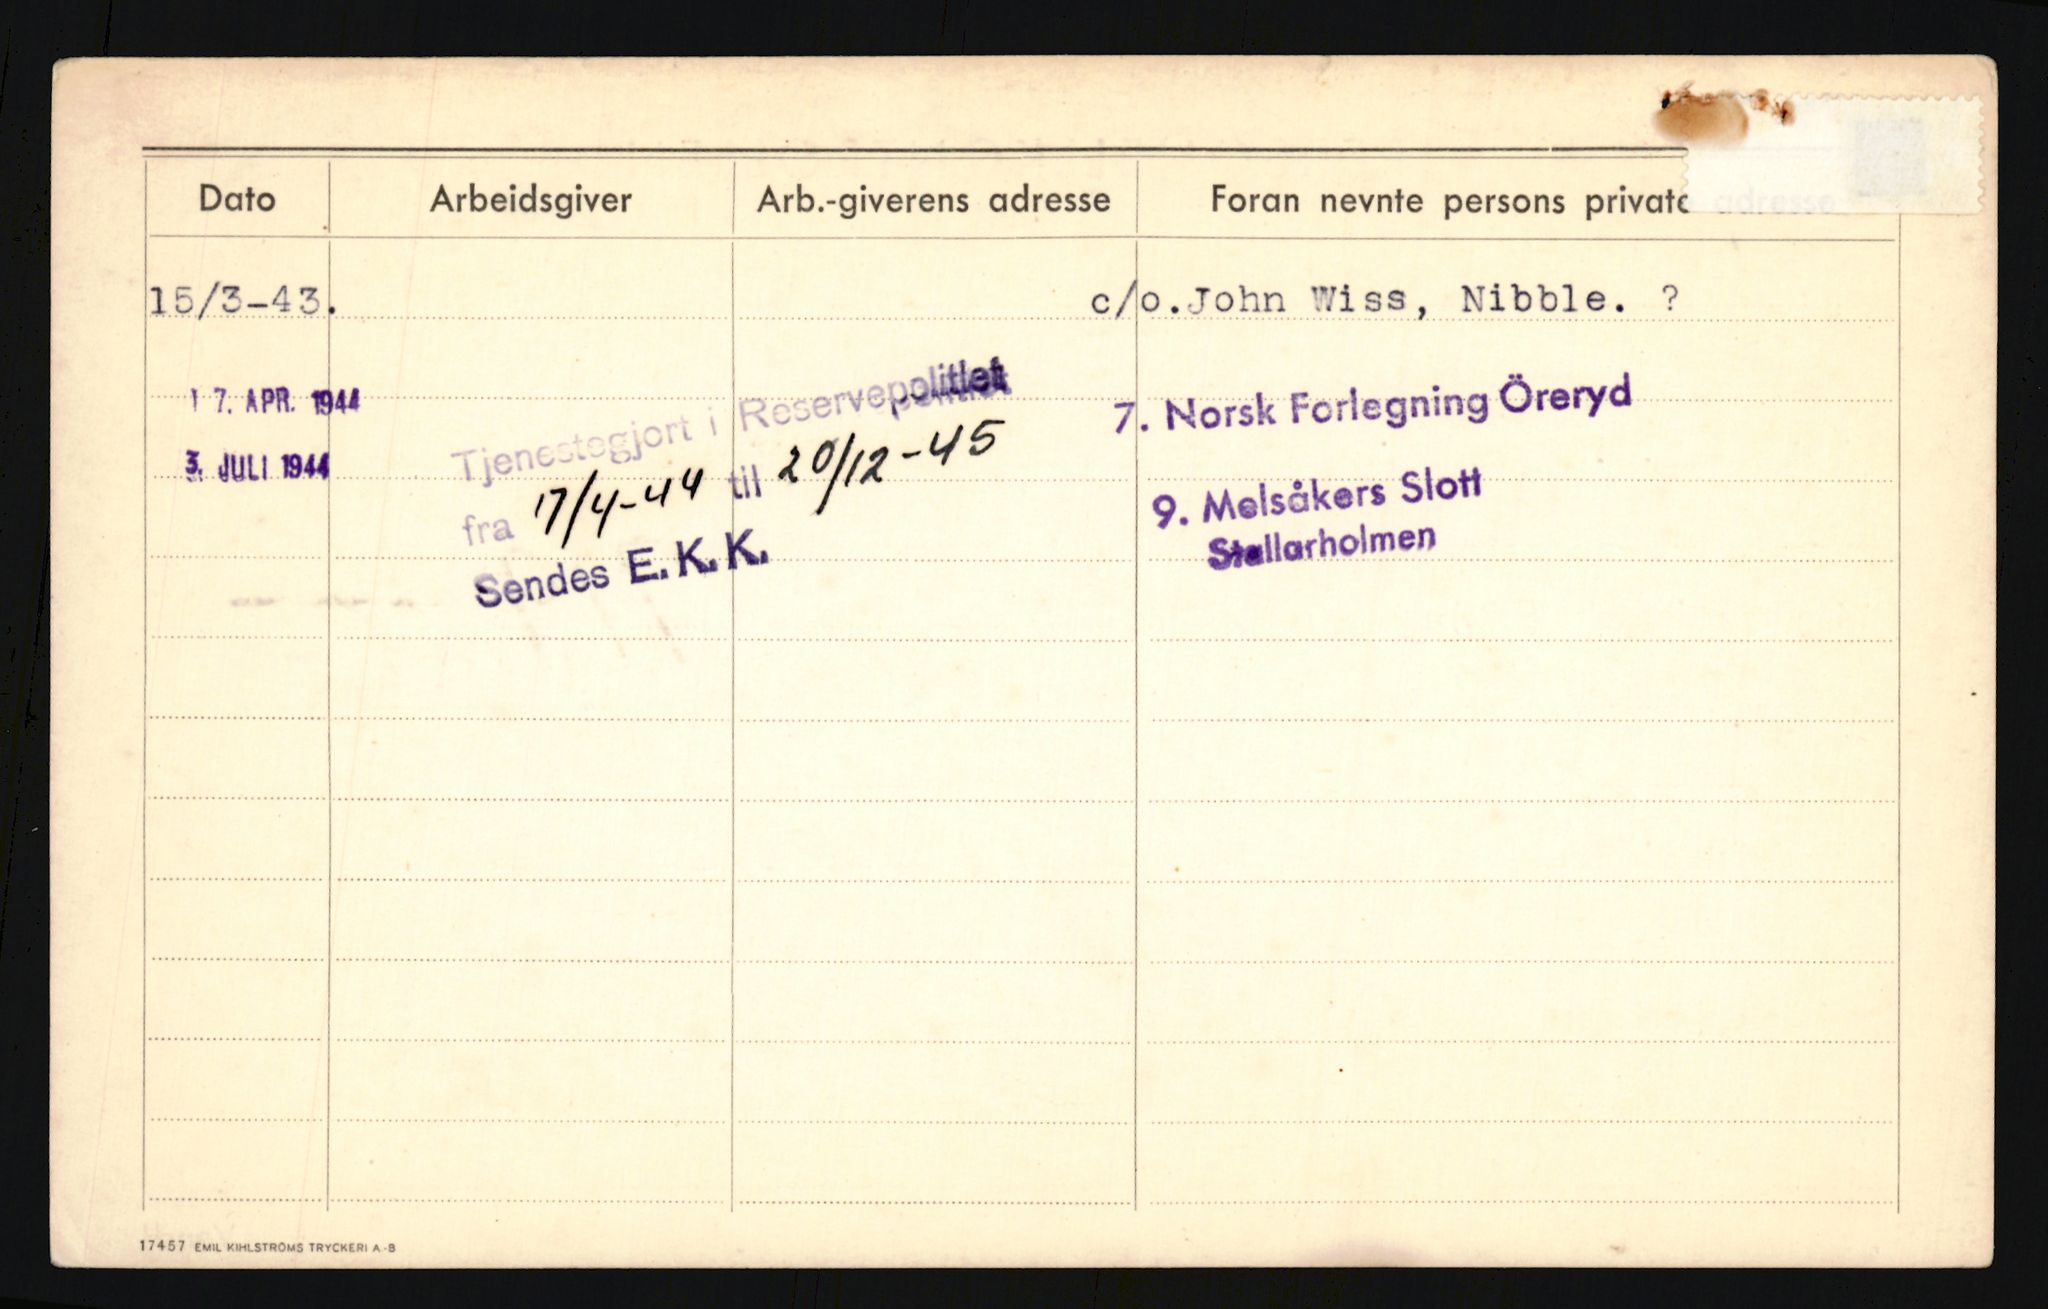 Dato Arbeidsgiver Arb.-giverens adresse Foran nevnte persons private adresse
15/3-43. c/o.John Wiss, Nibble. ?
17. APR. 1944 7. Norsk Forlegning Öreryd
Tjenestegjort i Reservepolitiet
3. JULI 1944 9. Melsåkers Slott
fra 17/4-44 til 20/12-45
Stallarholmen
Sendes E. K. K.
17457 EMIL KIHLSTRÖMS TRYCKERI A.-B